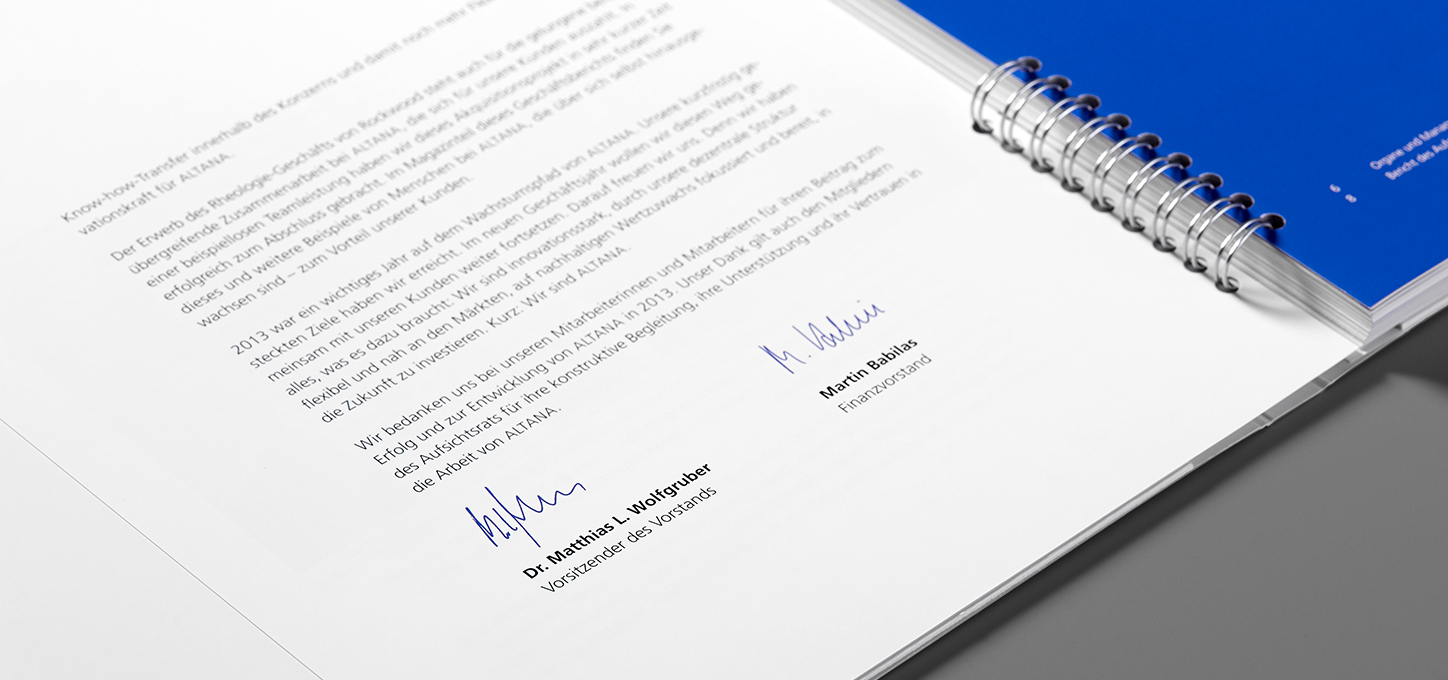 Know-how-Transfer innerhalb des Konzerns und damit noch mehr
vationskraft für ALTANA.
Der Erwerb des Rheologie-Geschäfts von Rockwood steht auch für die gelungene
übergreifende Zusammenarbeit bei ALTANA, die sich für unsere Kunden auszahlt. In
einer beispiellosen Teamleistung haben wir dieses Akquisitionsprojekt in sehr kurzer Zeit
erfolgreich zum Abschluss gebracht. Im Magazinteil dieses Geschäftsberichts finden Sie
dieses und weitere Beispiele von Menschen bei ALTANA, die über sich selbst hinausge-
wachsen sind – zum Vorteil unserer Kunden.
2013 war ein wichtiges Jahr auf dem Wachstumspfad von ALTANA. Unsere kurzfristig ge-
steckten Ziele haben wir erreicht. Im neuen Geschäftsjahr wollen wir diesen Weg ge-
meinsam mit unseren Kunden weiter fortsetzen. Darauf freuen wir uns. Denn wir haben
alles, was es dazu braucht: Wir sind innovationsstark, durch unsere dezentrale Struktur
flexibel und nah an den Märkten, auf nachhaltigen Wertzuwachs fokussiert und bereit, in
die Zukunft zu investieren. Kurz: Wir sind ALTANA.
Wir bedanken uns bei unseren Mitarbeiterinnen und Mitarbeitern für ihren Beitrag zum
Erfolg und zur Entwicklung von ALTANA in 2013. Unser Dank gilt auch den Mitgliedern
des Aufsichtsrats für ihre konstruktive Begleitung, ihre Unterstützung und ihr Vertrauen in
die Arbeit von ALTANA.
Dr. Matthias L. Wolfgruber
Vorsitzender des Vorstands
Martin Babilas
Finanzvorstand
6 Organe und
8 Bericht des